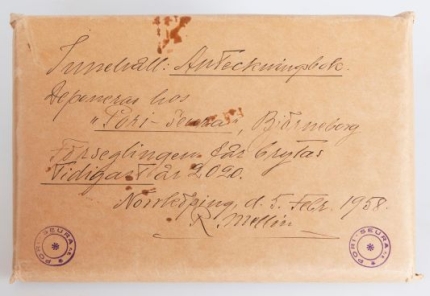 Innehåll: Anteckningsbok.
Deponeras hos
"Pori-Seura", Björneborg
Förseglingen får brytas
Tidigast år 2020.
Norrköping, d. 5. Febr. 1958.
R. Mellin
PORI-SEURA
PORI-SEURA